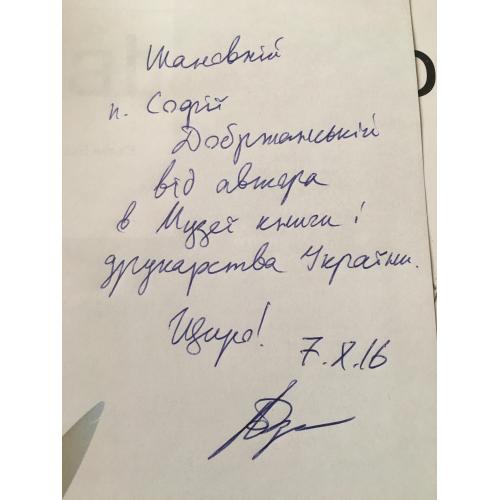 Шановній
п. Софії
Добржанській
від автора
в Музеї книги і
друкарства України.
Щиро!
7.X.16